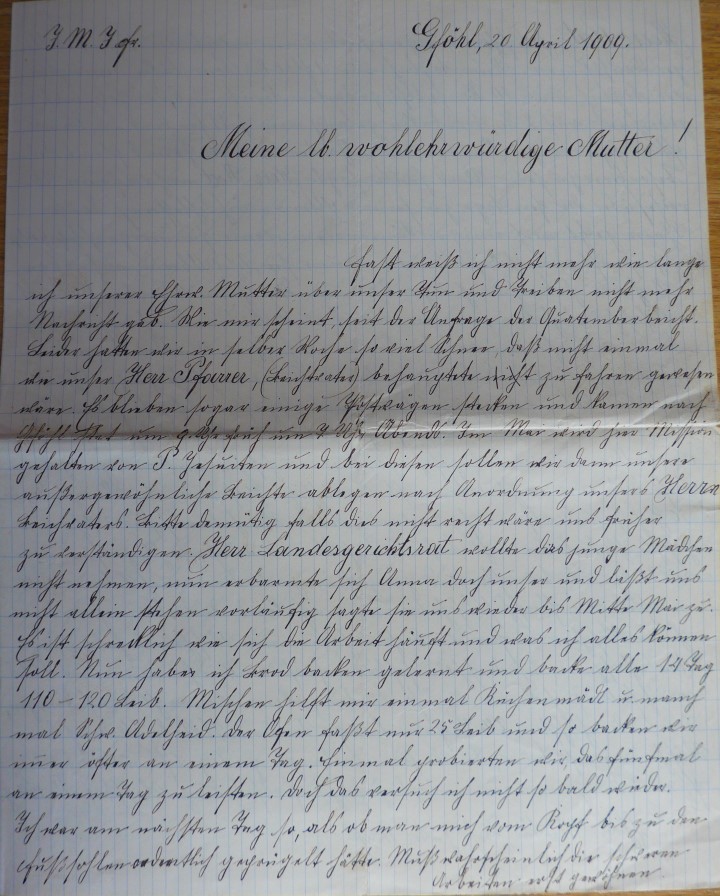 J. M. J. fr.
Gföhl, 20 April 1909.
Meine lb. wohlehrwürdige Mutter!
Fast weiß ich nicht mehr wie lange
ich unserer Ehrw. Mutter über unser Tun und Treiben nicht mehr
Nachricht geb. Wie mir scheint, seit der Anfrage der Quatemberbeicht.
Leider hatten wir in selber Woche so viel Schnee, daß nicht einmal
wie unser Herr Pfarrer, (Beichtvater) behauptete nicht zu fahren gewesen
wäre. Es blieben sogar einige Postwägen stecken und kamen nach
Gföhl statt um 9 Uhr früh um 7 Uhr Abends. Im Mai wird hier Mission
gehalten von P. Jesuiten und bei diesen sollen wir dann unsere
außergewöhnliche Beichte ablegen nach Anordnung unsers Herrn
Beichtvaters. Bitte demütig falls dies nicht recht wäre uns früher
zu verständigen. Herr Landesgerichtsrat wollte das junge Mädchen
nicht nehmen, nun erbarmte sich Anna doch unser und läßt uns
nicht allein stehen vorläufig sagte sie uns wieder bis Mitte Mai zu.
Es ist schrecklich wie sich die Arbeit häuft und was ich alles können
soll. Nun habe ich Brod backen gelernt und backe alle 14 Tag
110 – 120 Leib. Mischen hilft mir einmal Küchenmädl u. manch
mal Schw. Adelheid. Der Ofen faßt nur 25 Leib und so backen wir
immer öfter an einem Tag. Einmal probierten wir das fünfmal
an einem Tag zu leisten. Doch das versuch ich nicht so bald wieder.
Ich war am nächsten Tag so, als ob man mich vom Kopf bis zu den
Fußsohlen ordentlich geprügelt hätte. Muß wahrscheinlich die schweren
Arbeiten erst gewöhnen.